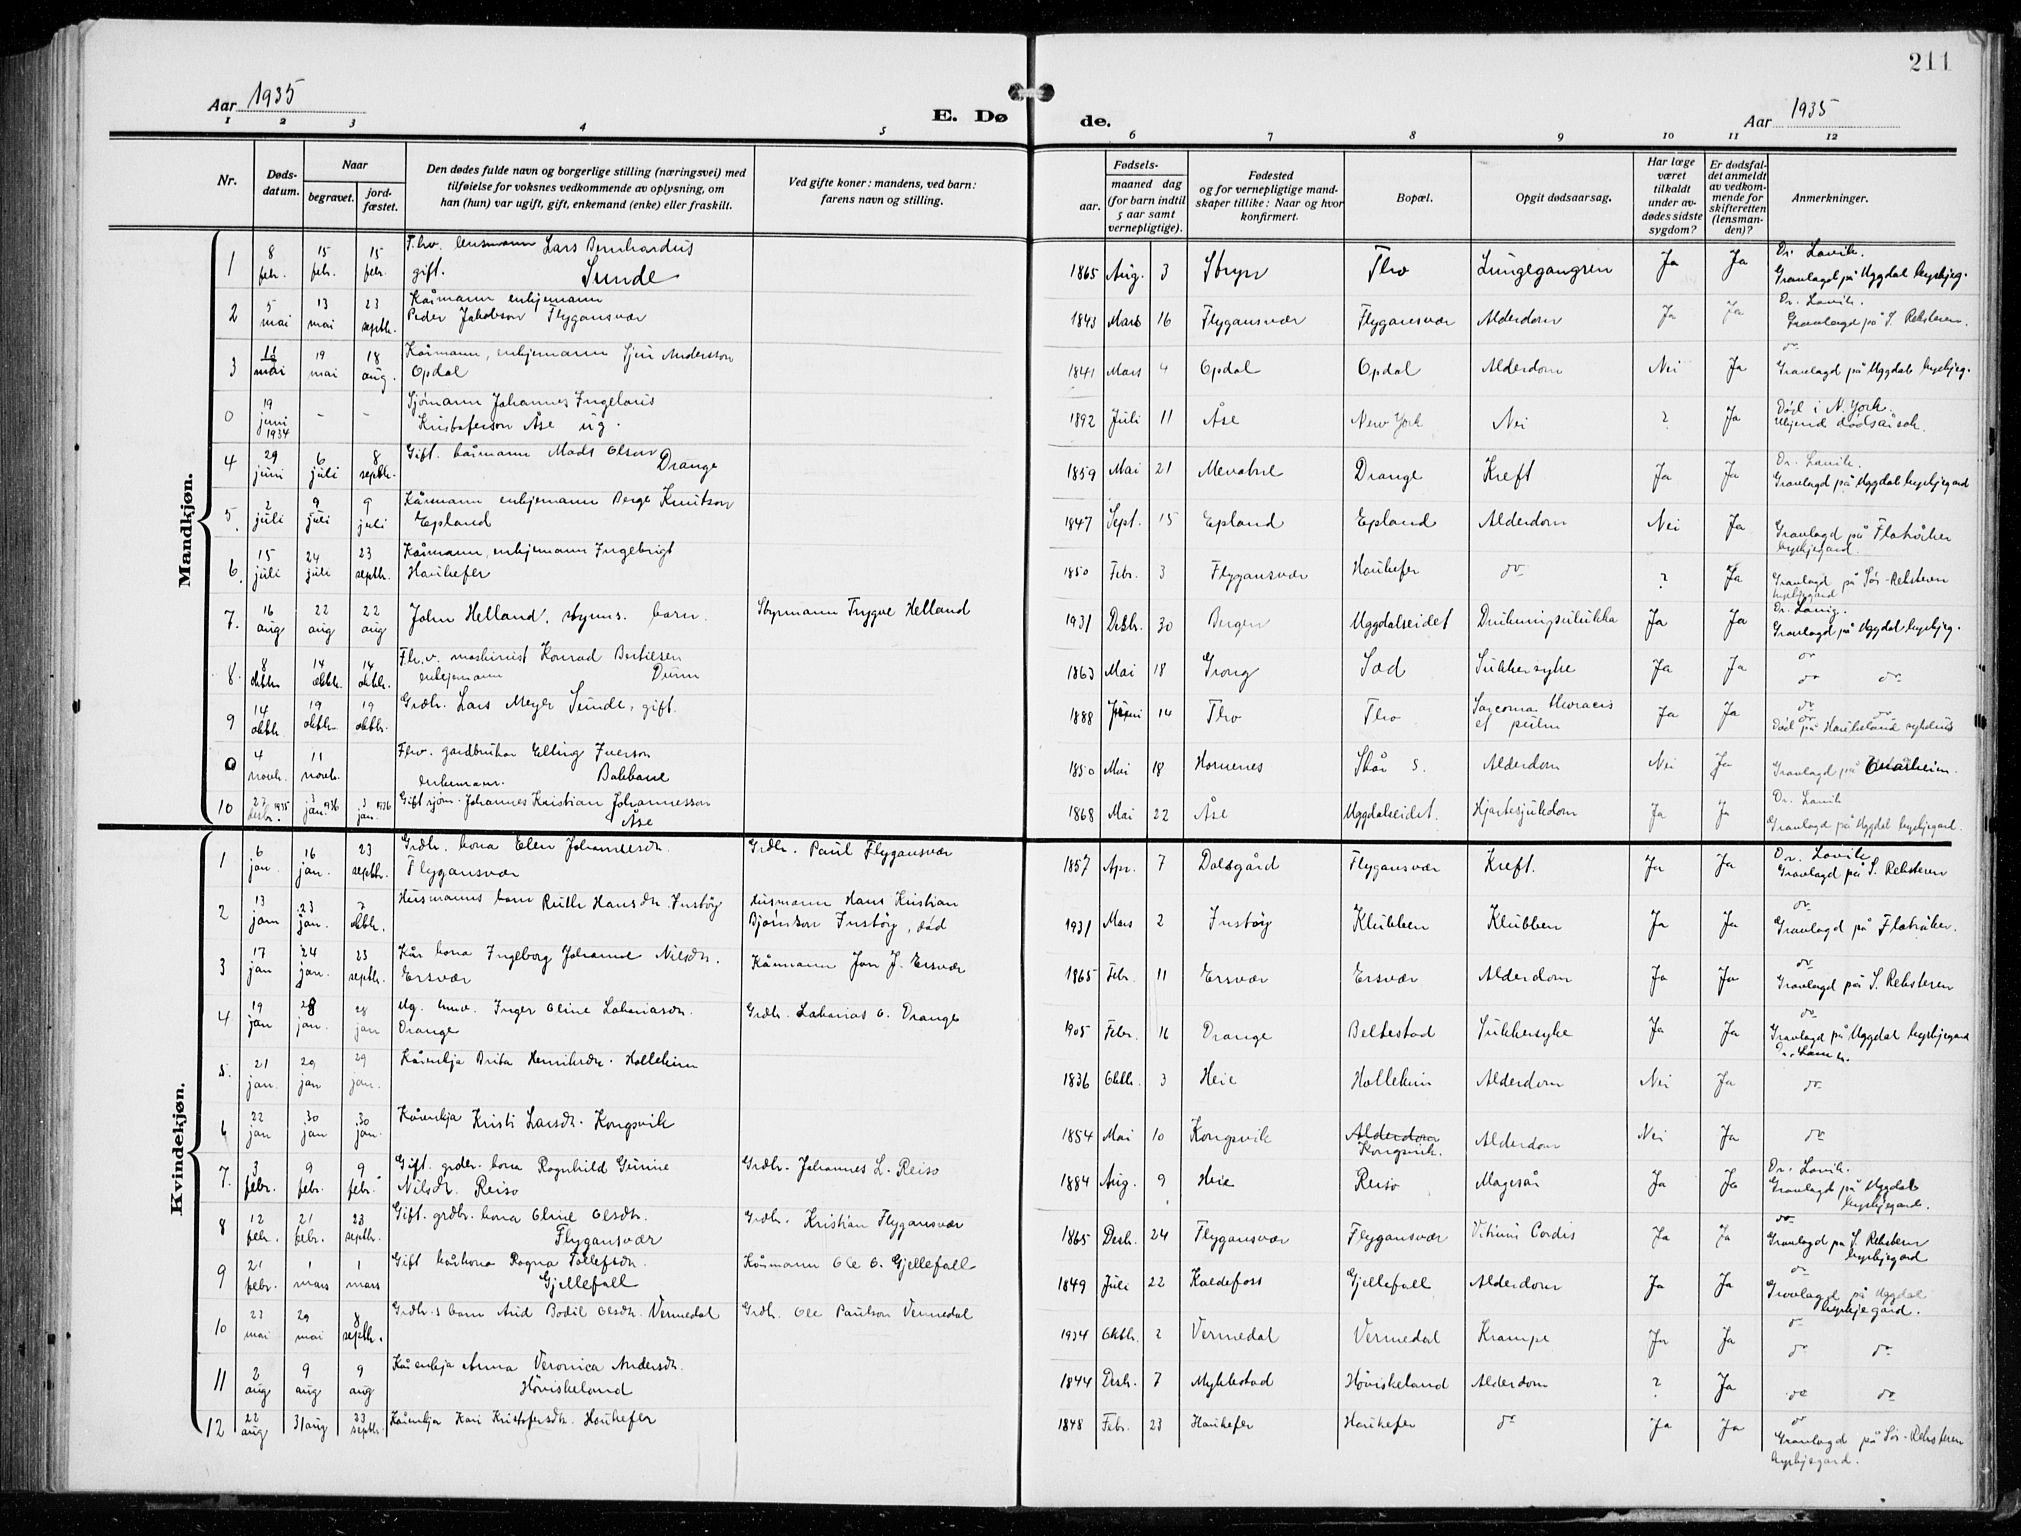 211
Aar 1935
E. Døde.
Aar 1935
1 2 3 4 5 6 7 8 9 10 11 12
Nr.
Døds-datum.
Naar
begravet.
jord-fæstet.
Den dødes fulde navn og borgerlige stilling (næringsvei) med
tilføielse for voksnes vedkommende av oplysning, om
han (hun) var ugift, gift, enkemand (enke) eller fraskilt.
Ved gifte koner: mandens, ved barn:
farens navn og stilling.
Fødsels-
aar. maaned dag
(for barn indtil
5 aar samt
vernepligtige).
Fødested
og for vernepligtige mand-
skaper tillike: Naar og hvor
konfirmert.
Bopæl.
Opgit dødsaarsag.
Har læge
været
tilkaldt
under av-
dødes sidste
sygdom?
Er dødsfal-
det anmeldt
av vedkom-
mende for
skifteretten
(lensman-
den)?
Anmerkninger.
Mandkjøn.
1 8 febr. 15 febr. 15 febr. Fhv. lensmann Lars Bernhardus gift. Sunde 1865 Aug. 3 Stryn Flvo Lungegangren Ja Ja Dr. Lavik. Gravlagd på Uggdal kyrkjeg.
2 5 mai 13 mai 23 septbr. Kåmann enkjemann Peder Jakobson Flygansvær 1843 Mars 16 Flygansvær Flygansvær Alderdom Ja Ja Dr. Lavik. Gravlagd på S. Reksteren.
3 11 mai 19 mai 18 aug. Kårmann, enkjemann Sjur Andersson Opdal 1841 Mars 4 Opdal Opdal Alderdom Nei Ja do Gravlagd på Uggdal kyrkjeg.
0 19 juni 1934 - - Sjømann Johannes Ingelaris Kristoferson Åse ug. 1892 Juli 11 Åse New York Nei ? Ja Død i N. York. Ukjend dødsårsak.
4 29 juni 6 juli 8 septbr. Gift. kårmann Mads Olson Drange 1859 Mai 21 Drange Kreft Ja Ja Dr. Lavik. Gravlagd på Uggdal kyrkjegard
5. 2 juli 9 juli 9 juli Kårmann enkjemann Berge Knutson Epland 1847 Sept. 15 Epland Epland Alderdom Nei Ja Gravlagd på Flatråker kyrkjegard.
6. 15 juli 24 juli 23 septbr. Kårmann, enkjemann Ingebrigt Haukefer 1850 Febr. 3 Flygansvær Haukefer do ? Ja Gravlagd på Sör-Reksteren kyrkjegard
7. 16 aug 22 aug 22 aug John Helland, styrms. barn. Styrmann Trygve Helland 1931 Desbr. 30 Bergen Uggdalseidet Drukningsulukka Ja Ja Dr. Lavig. Gravlagd på Uggdal kyrkjeg.
8. 8 oktbr 14 oktbr. 14 oktbr. Fh.v. maskinist Konrad Bertilsen enkjemann Duun 1863 Mai 18 Grong Sæd Sukkersyke Ja Ja do do do.
9 14 oktbr. 19 oktbr. 19 oktbr. Grdbr. Lars Meyer Sunde, gift. 1888 Juni 14 Flvo Flvo Sarcoma thoracis et pulm Ja Ja do do Død på Haukeland sykehus
0 4 novbr. 11 novbr. Fhv. gardbrukar Elling Iverson enkemann. Bakkane 1850 Mai 18 Hornenes Skår S. Alderdom Nei Ja Gravlagd på
10 27 desbr. 1935 3 jan. 1936 3 jan. 1936 Gift sjøm. Johannes Kristian Johannesson Åse 1868 Mai 22 Åse Uggdalseidet. Hjartesjukdom Ja Ja Dr. Lavik Gravlagd på Uggdal kyrkjegard.
Kvindekjøn.
1 6 jan. 16 jan. 23 septbr. Grdbr. kona Elen Johannesdtr. Flygansvær Grdbr. Paul Flygansvær 1857 Apr. 7 Dalsgård Flygansvær Kreft. Ja Ja Dr. Lavik. Gravlagd på S. Reksteren
2 13 jan 23 jan. 7 oktbr. Husmanns barn Ruth Hansdtr. Instöy Husmann Hans Kristian Bjørnson Instöy, død 1931 Mars 2 Instöy Klubben Klubben Ja Ja do. Gravlagd på Flatråker.
3 17 jan 24 jan. 23 septbr. Kår kona Ingeborg Johanne Nilsdtr. Ersvær Kårmann Jon J. Ersvær 1865 Febr. 11 Ersvær Ersvær Alderdom Ja Ja do. Gravlagd på S. Reksteren
4 19 jan 28 jan. 28 jan Ug. Inger Oline Zakariasdtr. Drange Grdbr. Zakarias O. Drange 1905 Febr. 16 Drange Beltestad Sukkersyke Ja Ja do Gravlagd på Uggdal kyrkjegard
5. 21 jan. 29 jan 29 jan. Kårenkja Brita Henriksdtr. Hollekim 1836 Oktbr. 3 Heie Hollekim Alderdom Nei Ja do
6 22 jan 30 jan 30 jan. Kårenkja Kristi Larsdtr. Kongsvik 1854 Mai 10 Kongsvik Alderdom Kongsvik. Alderdom Nei Ja do
7. 3 febr. 9 febr. 9 febr. Gift. grdbr. kona Ragnhild Gurine Nilsdtr. Reiso Grdbr. Johannes L. Reiso 1884 Aug. 9 Heie Reiso Magesår Ja Ja Dr. Lavik. Gravlagd på Uggdal kyrkjegard.
8 12 febr. 21 febr. 23 septbr. Gift. grdbr. kona Oline Olsdtr. Flygansvær Grdbr. Kristian Flygansvær 1865 Desbr. 24 Flygansvær Flygansvær Vitium Cordis Ja Ja do Gravlagd på S. Reksteren kyrkjegard
9 21 febr. 1 mars 1 mars Gift kårkona Ragna Tollefsdtr. Gjellefall Kårmann Ole O. Gjellefall 1849 Juli 22 Kaldefoss Gjellefall Alderdom Ja Ja do Gravlagd på Uggdal kyrkjegard.
10 23 mai 29 mai 8 septbr. Grdbr.s barn Aud Bodil Olsdtr. Vernedal Grdbr. Ole Paulson Vernedal 1934 Oktbr. 2 Vernedal Vernedal Krampe Ja Ja do do.
11 2 aug 9 aug 9 aug Kårenkja Anna Veronica Andersdtr. Høviskeland 1844 Desbr. 7 Myklestad Høviskeland Alderdom ? Ja do do
12 22 aug 31 aug 23 septbr. Kårenkja Kari Kristofersdtr. Haukefer 1848 Febr. 23 Haukefer Haukefer do Ja Ja do Gravlagd på Sör-Reksteren kyrkjegard.